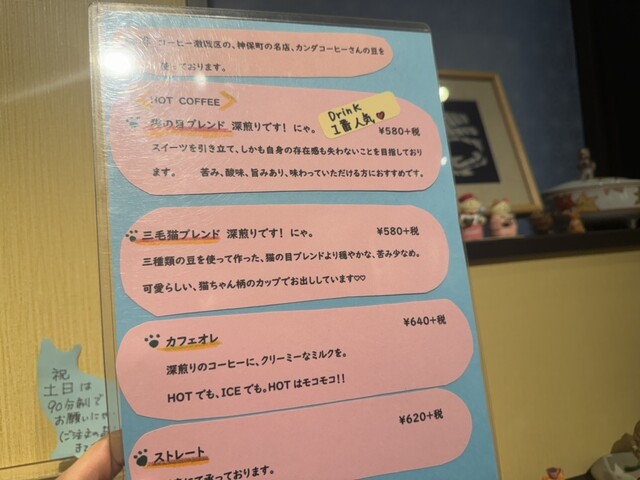 コーヒー激戦区の、神保町の名店、カンダコーヒーさんの豆を
使っております。
HOT COFFEE
Drink
1番人気♥
猫の目ブレンド 深煎りです! にゃ。 ¥580+税
スイーツを引き立て、しかも自身の存在感も失わないことを目指しており
ます。 苦み、酸味、旨みあり、味わっていただける方におすすめです。
三毛猫ブレンド 深煎りです! にゃ。 ¥580+税
三種類の豆を使って作った、猫の目ブレンドより穏やかな、苦み少なめ。
可愛らしい、猫ちゃん柄のカップでお出ししています♡♡
カフェオレ ¥640+税
深煎りのコーヒーに、クリーミーなミルクを。
HOTでも、ICEでも。HOTはモコモコ!!
ストレート ¥620+税
ております。
祝
土日は
90分制で
お願いにゃ
(ご注文の